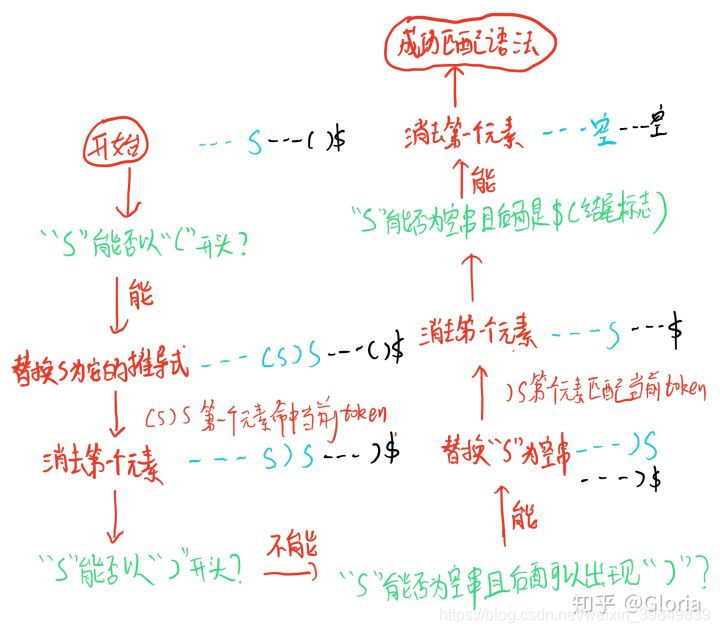 开始 --- S ---()$
"S"能否以"("开头?
能
替换S为它的推导式 --- (S)S ---()$
(S)S 第一个元素命中当前token
消去第一个元素 --- S)S ---)$
"S"能否以")"开头?
不能
"S"能否为空串且后面可以出现")"?
能
替换"S"为空串 ---)S
---)$
)S第一个元素匹配当前token
消去第一个元素 ---S ---$
"S"能否为空串且后面是$(结尾标志)
能
消去第一个元素 ---空 ---空
成功匹配语法
知乎 @Gloria
https://blog.csdn.net/weixin_39849839